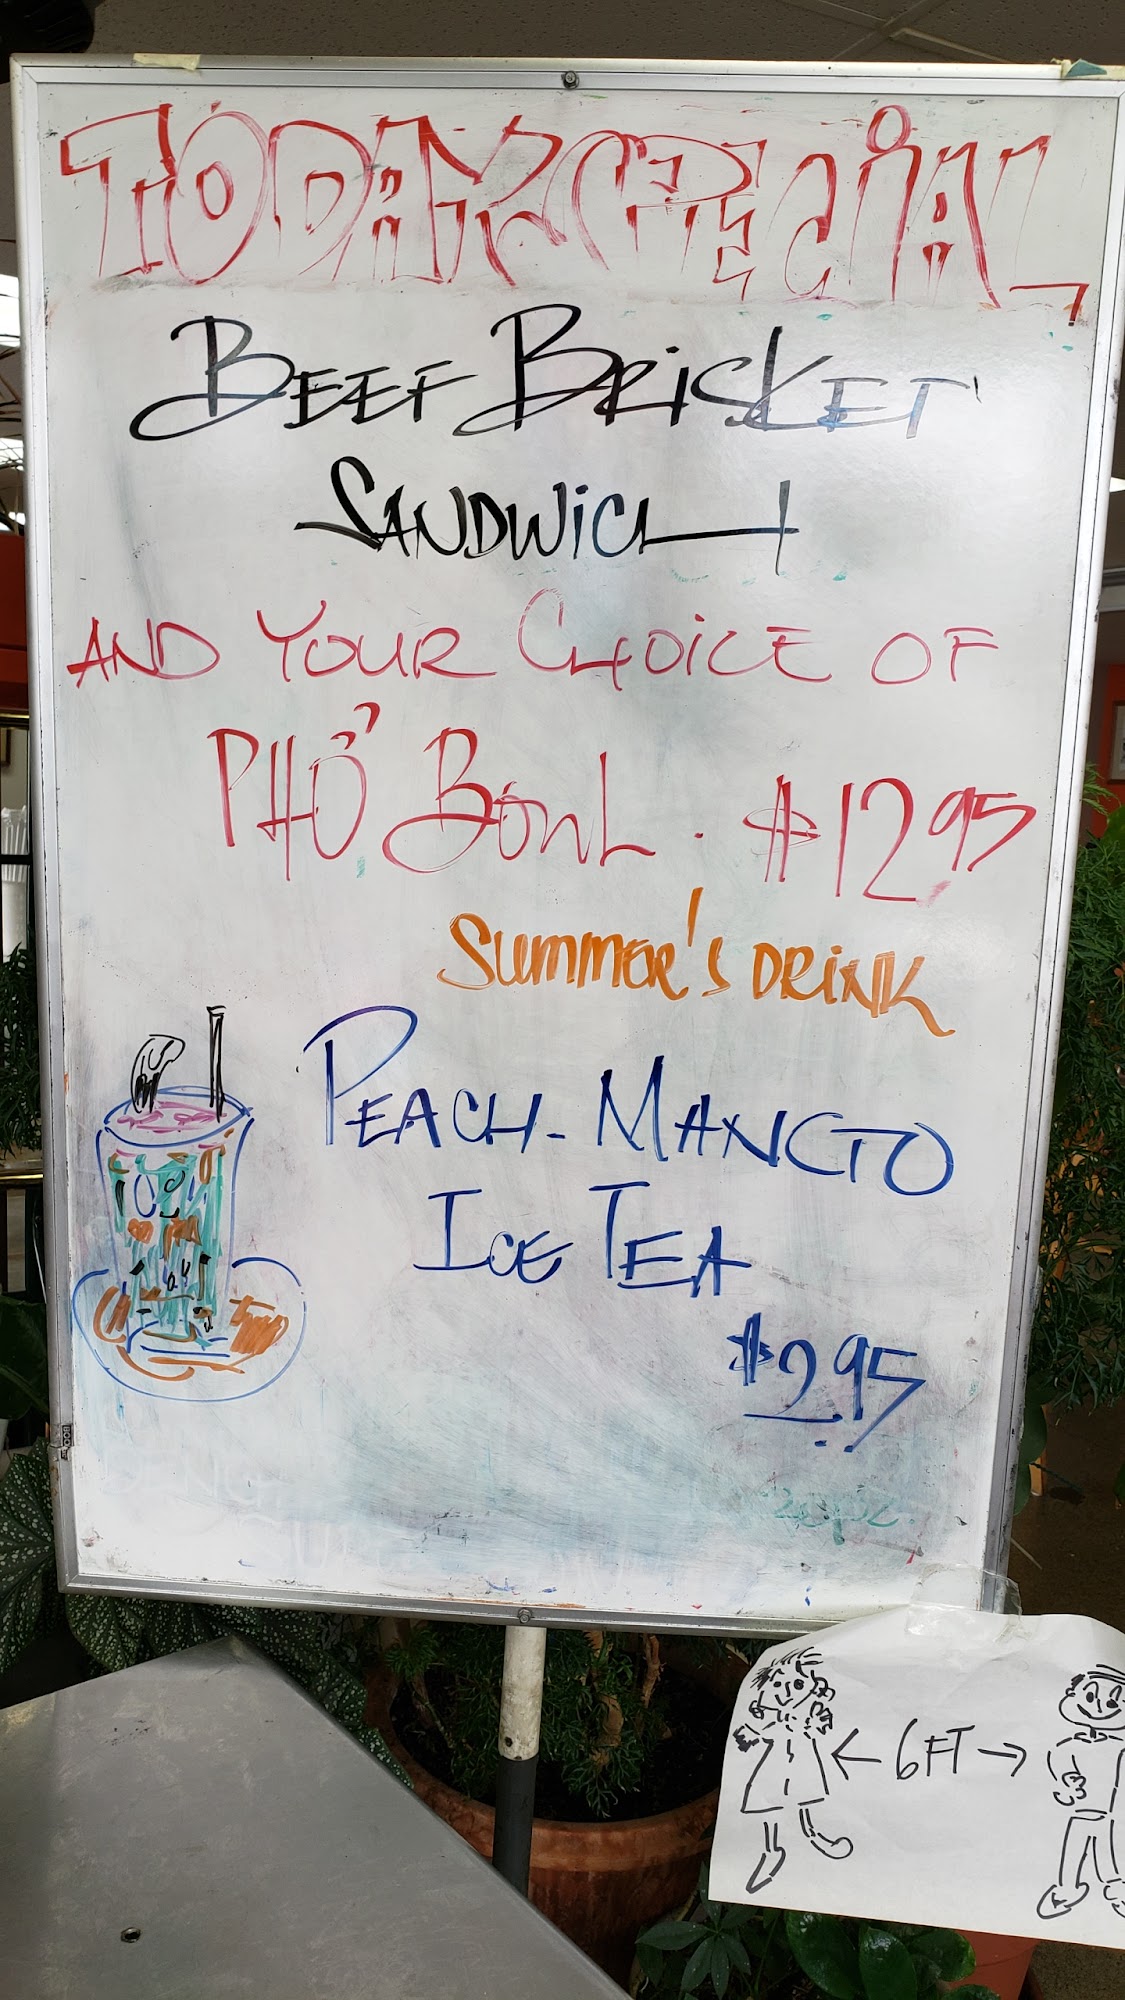 TODAY SPECIAL
BEEF BRISKET
SANDWICH
AND YOUR CHOICE OF
PHỞ BOWL. $12.95
SUMMER'S DRINK
PEACH-MANGO
ICE TEA
$2.95
← 6FT →